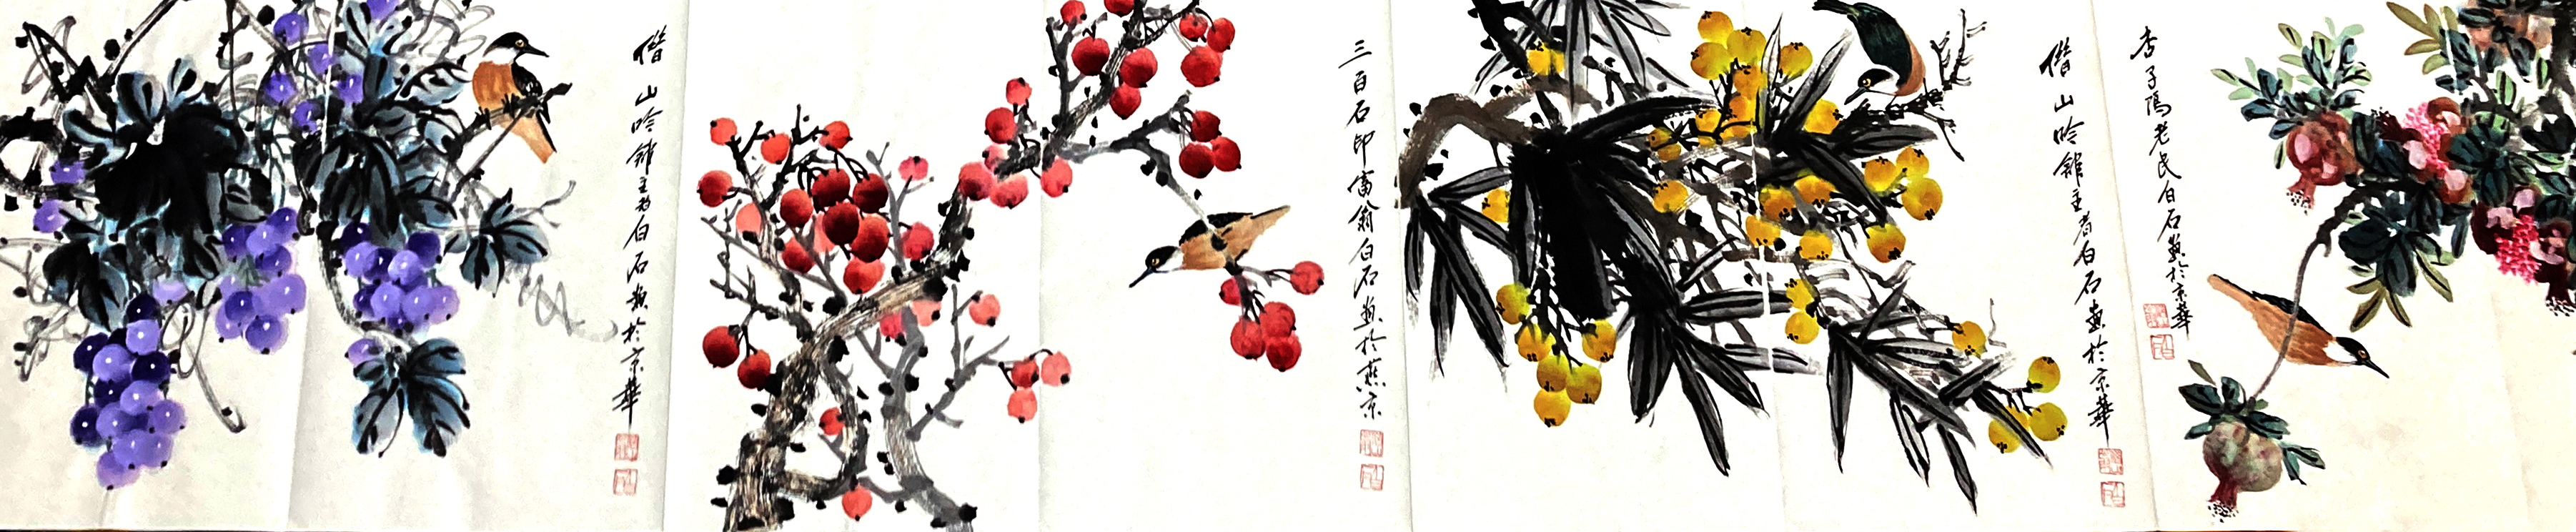 借山吟馆主者白石画於京華
三百石印富翁白石画於燕京
借山吟馆主者白石画於京華
杏子隖老民白石画於京華